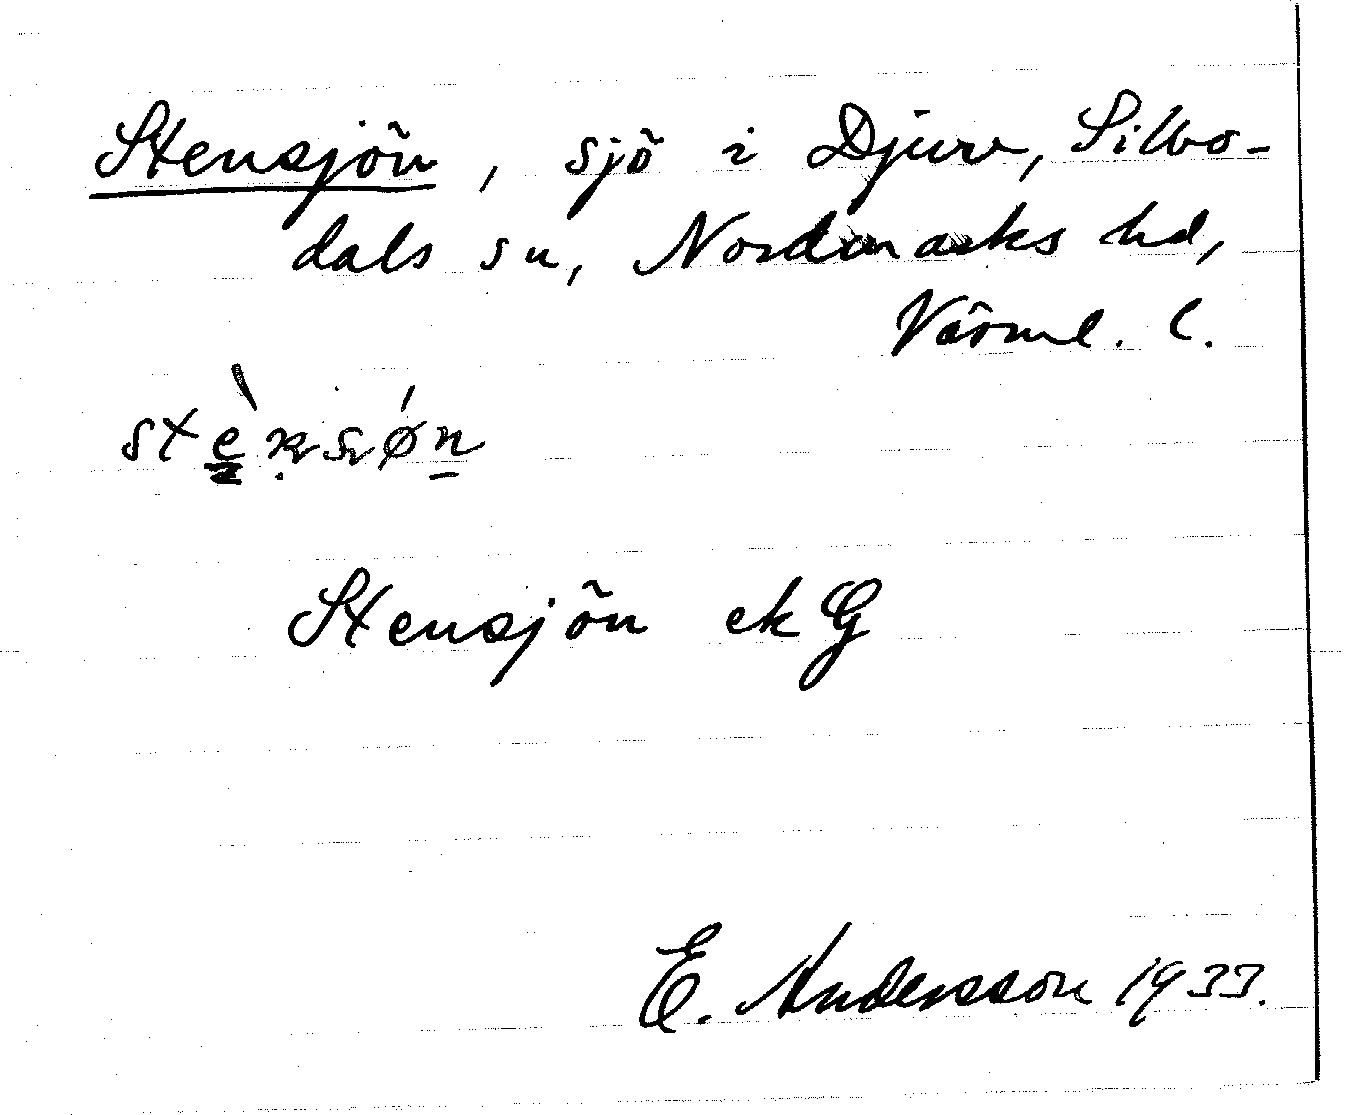 Stensjön, sjö i Djurv, Silbo-
dals sn, Nordmarks hd,
Värml. l.
Stensjön ek G
E. Andersson 1933.